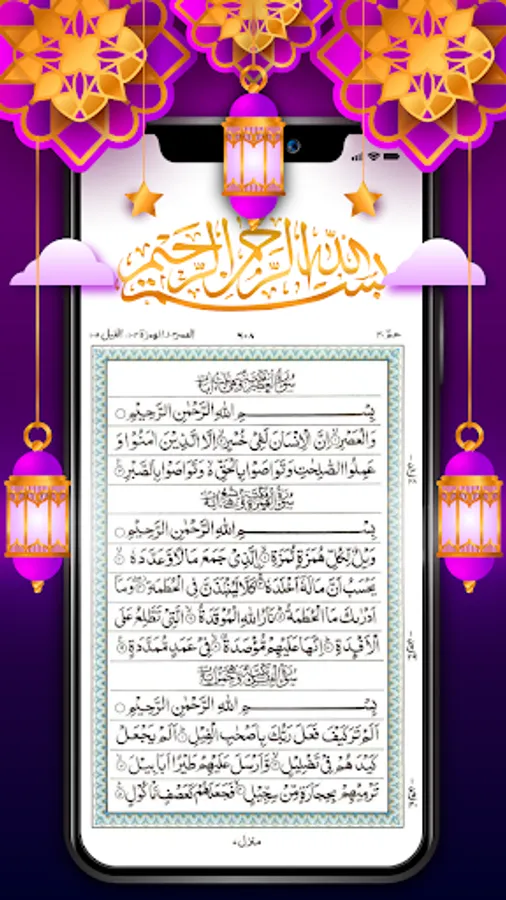 بسم الله الرحمن الرحيم
العصر ١٠٣ الهمزة ١٠٤ الفيل ١٠٥
٦٠٨
عم ٣٠
بِسْمِ اللهِ الرَّحْمٰنِ الرَّحِيْمِ
وَالْعَصْرِ اِنَّ الْاِنْسَانَ لَفِيْ خُسْرٍ اِلَّا الَّذِيْنَ اٰمَنُوْا وَ
عَمِلُوا الصّٰلِحٰتِ وَتَوَاصَوْا بِالْحَقِّ وَتَوَاصَوْا بِالصَّبْرِ
بِسْمِ اللهِ الرَّحْمٰنِ الرَّحِيْمِ
وَيْلٌ لِّكُلِّ هُمَزَةٍ لُّمَزَةٍ الَّذِيْ جَمَعَ مَالًا وَّعَدَّدَهٗ
يَحْسَبُ اَنَّ مَالَهٗٓ اَخْلَدَهٗ كَلَّا لَيُنْۢبَذَنَّ فِى الْحُطَمَةِ وَمَآ
اَدْرٰىكَ مَا الْحُطَمَةُ نَارُ اللهِ الْمُوْقَدَةُ الَّتِيْ تَطَّلِعُ عَلَى
الْاَفْـِٕدَةِ اِنَّهَا عَلَيْهِمْ مُّؤْصَدَةٌ فِيْ عَمَدٍ مُّمَدَّدَةٍ
بِسْمِ اللهِ الرَّحْمٰنِ الرَّحِيْمِ
اَلَمْ تَرَ كَيْفَ فَعَلَ رَبُّكَ بِاَصْحٰبِ الْفِيْلِ اَلَمْ يَجْعَلْ
كَيْدَهُمْ فِيْ تَضْلِيْلٍ وَّاَرْسَلَ عَلَيْهِمْ طَيْرًا اَبَابِيْلَ
تَرْمِيْهِمْ بِحِجَارَةٍ مِّنْ سِجِّيْلٍ فَجَعَلَهُمْ كَعَصْفٍ مَّاْكُوْلٍ
منزل ٧